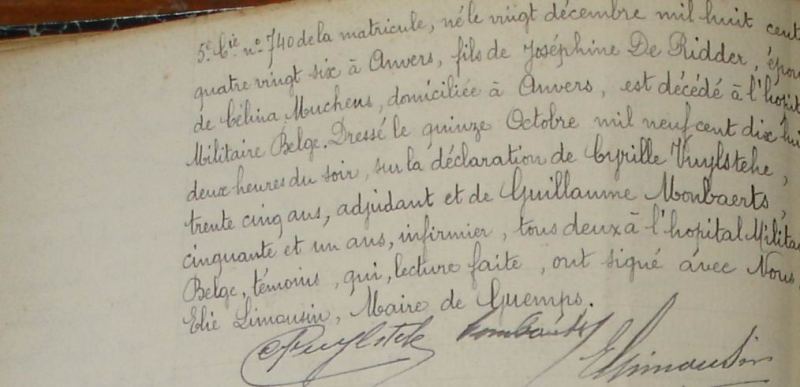 5e Cie no 740 de la matricule, né le vingt décembre mil huit cent
quatre vingt six à Anvers, fils de Joséphine De Ridder, épou
de Célina Muchens, domiciliée à Anvers, est décédé à l'hopit
Militaire Belge. Dressé le quinze Octobre mil neuf cent dix hui
deux heures du soir, sur la déclaration de Cyrille Vuylsteke,
trente cinq ans, adjudant et de Guillaume Monbaerts,
cinquante et un ans, infirmier, tous deux à l'hopital Milita
Belge, témoins, qui, lecture faite, ont signé avec Nous,
Elie Limousin, Maire de Guemps.
CVuylstek Mombaerts ELimousin